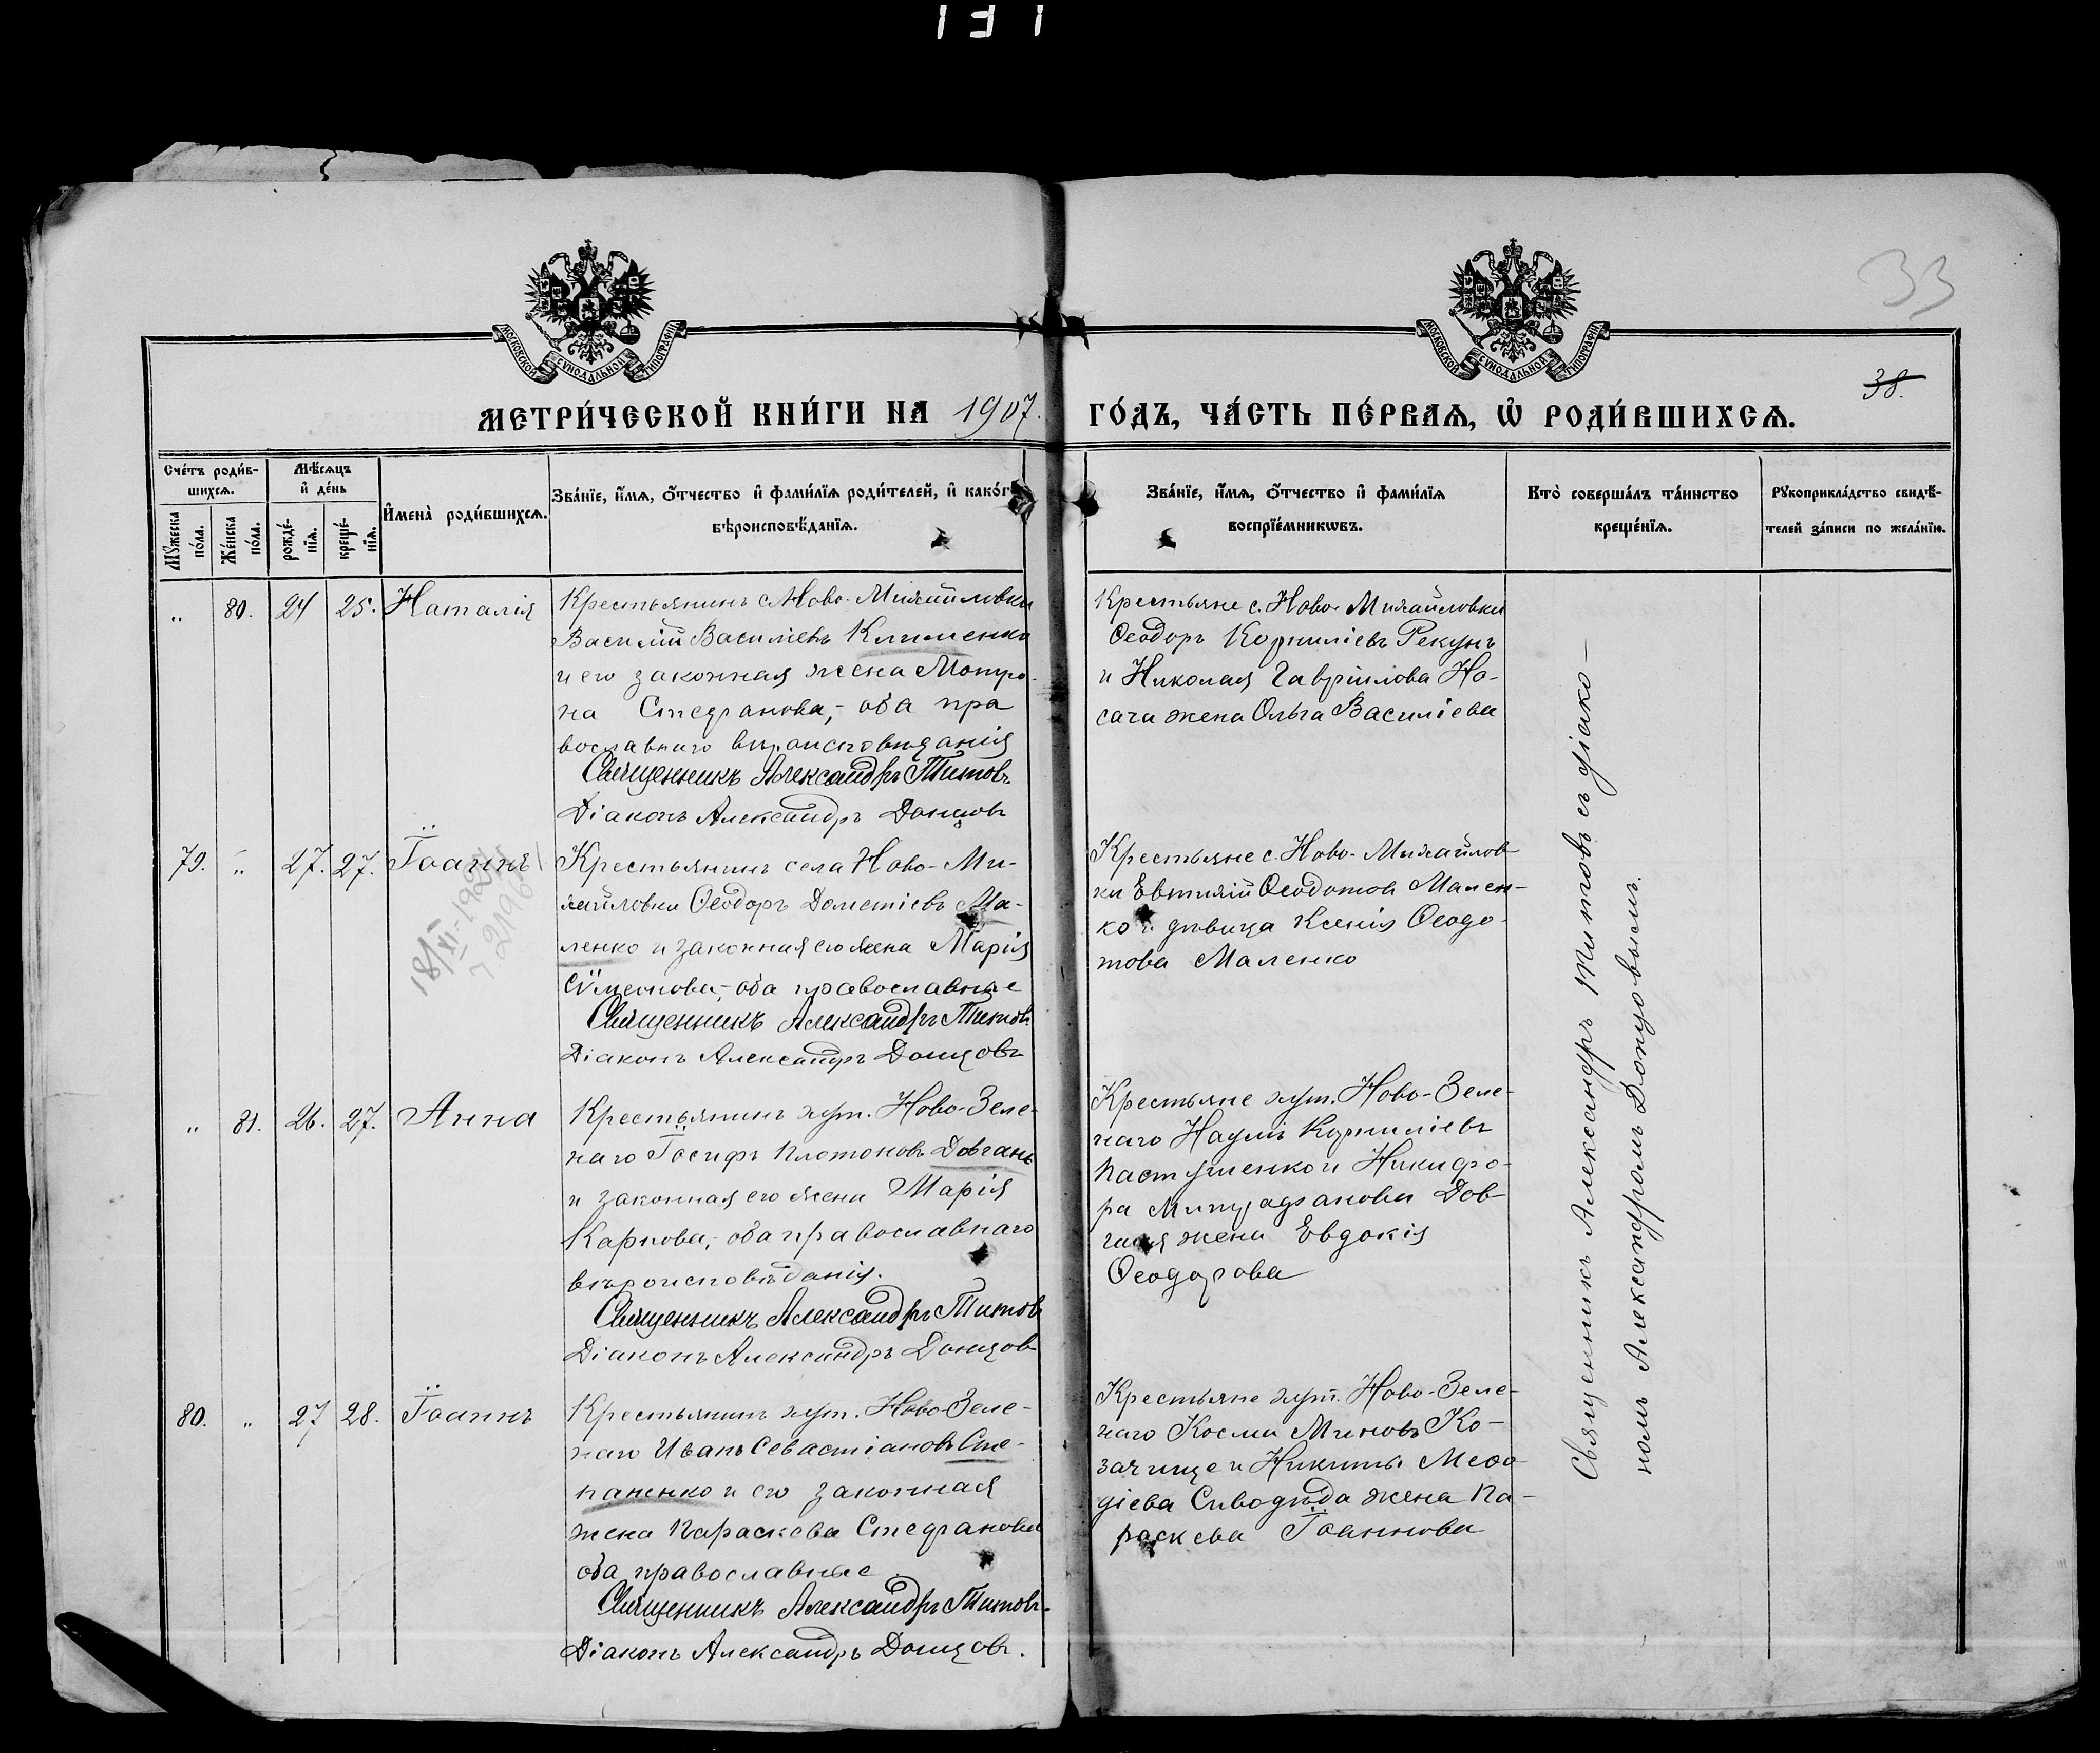 131
МОСКОВСКОЙ СѴНОДАЛЬНОЙ ТИПОГРАФІИ
МОСКОВСКОЙ СѴНОДАЛЬНОЙ ТИПОГРАФІИ
33
38.
МЕТРИ́ЧЕСКОЙ КНИ́ГИ НА 1907. ГО́ДЪ, ЧА́СТЬ ПЕ́РВАѦ, Ѡ҆ РОДИ́ВШИХСѦ.
Сче́тъ роди́в-
шихсѧ.
Мѣ́сѧцъ
и҆ де́нь
Мꙋ́жеска
по́ла.
Же́нска
по́ла.
рожде́-
нїѧ.
креще́-
нїѧ.
И҆мена̀ роди́вшихсѧ.
Зва́нїе, и҆́мѧ, ѻ҆́тчество и҆ фами́лїѧ роди́телей, и҆ како́гѡ
вѣроисповѣ́данїѧ.
Зва́нїе, и҆́мѧ, ѻ҆́тчество и҆ фами́лїѧ
воспрїе́мникѡвъ.
Кто̀ соверша́лъ та́инство
креще́нїѧ.
Рꙋкоприкла́дство свидѣ́-
телей за́писи по жела́нїю.
„ 80. 24 25. Наталія
Крестьянинъ с Ново-Михайловки
Василій Василіевъ Клименко
и его законная жена Матро-
на Стефанова,- оба пра
вославнаго вѣроисповѣданія
Священникъ Александръ Титовъ
Діаконъ Александръ Донцовъ
Крестьяне с. Ново-Михайловки
Ѳеодоръ Корниліевъ Рекунъ
и Николая Гавріилова Но-
сача жена Ольга Василіева
79. „ 27. 27. Іоаннъ
18/XI-1927
Крестьянинъ села Ново-Ми-
хайловки Ѳеодоръ Дометіевъ Ма-
ленко и законная его жена Марія
Сѵмеонова,- оба православные
Священникъ Александръ Титовъ
Діаконъ Александръ Донцовъ
Крестьяне с. Ново-Михайлов-
ки Евтихій Ѳеодотов Мален-
ко и дѣвица Ксенія Ѳеодо-
това Маленко
„ 81. 26. 27. Анна
Крестьянинъ хут. Ново-Зеле-
наго Іосифъ Платоновъ Довгань
и законная его жена Марія
Карпова,- оба православнаго
вѣроисповѣданія.
Священникъ Александръ Титовъ
Діаконъ Александръ Донцовъ
Крестьяне хут. Ново-Зеле-
наго Наумъ Корниліевъ
Пастушенко и Никифо-
ра Дов-
ганя жена Евдокія
Ѳеодорова
80. „ 27 28. Іоаннъ
Крестьянинъ хут. Ново-Зеле-
наго Иванъ Севастіановъ Сте-
паненко и его законная
жена Параскева Стефанова
оба православные
Священникъ Александръ Титовъ
Діаконъ Александръ Донцовъ.
Крестьяне хут. Ново-Зеле-
наго Косма Миновъ Ко-
зачище и Никиты Меѳо-
діева Сиводѣда жена Па-
раскева Іоаннова
Священникъ Александръ Титовъ съ діако-
номъ Александромъ Донцовымъ.